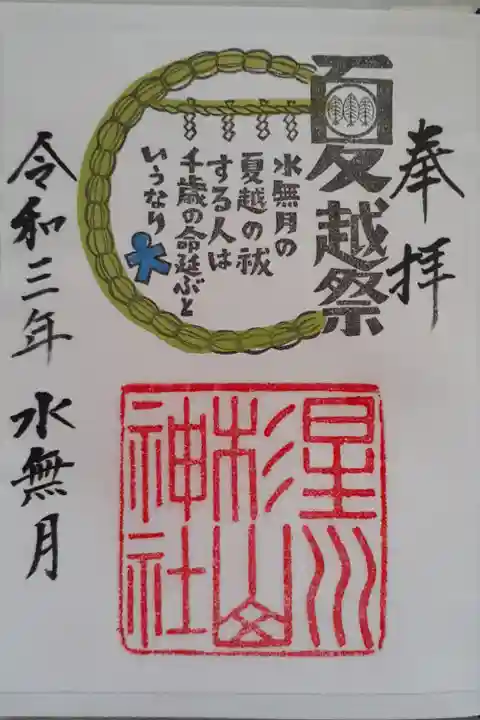 奉拝
夏越祭
水無月の
夏越の祓
する人は
千歳の命延ぶと
いうなり
星川
杉山
神社
令和三年 水無月